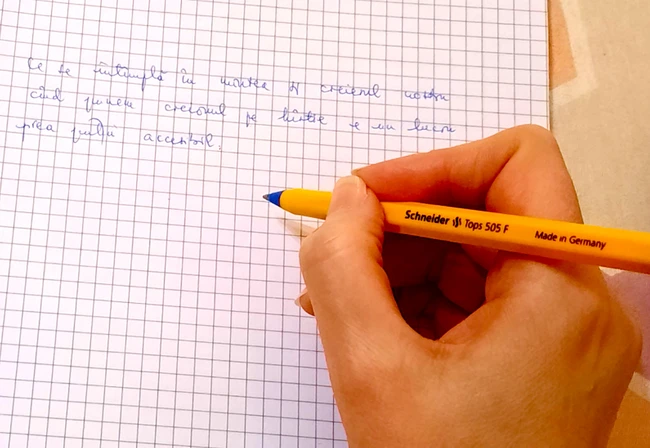 Ce se întâmplă în mintea și creierul nostru
când punem creionul pe hârtie e un lucru
prea puțin accesibil.
Schneider Tops 505 F Made in Germany